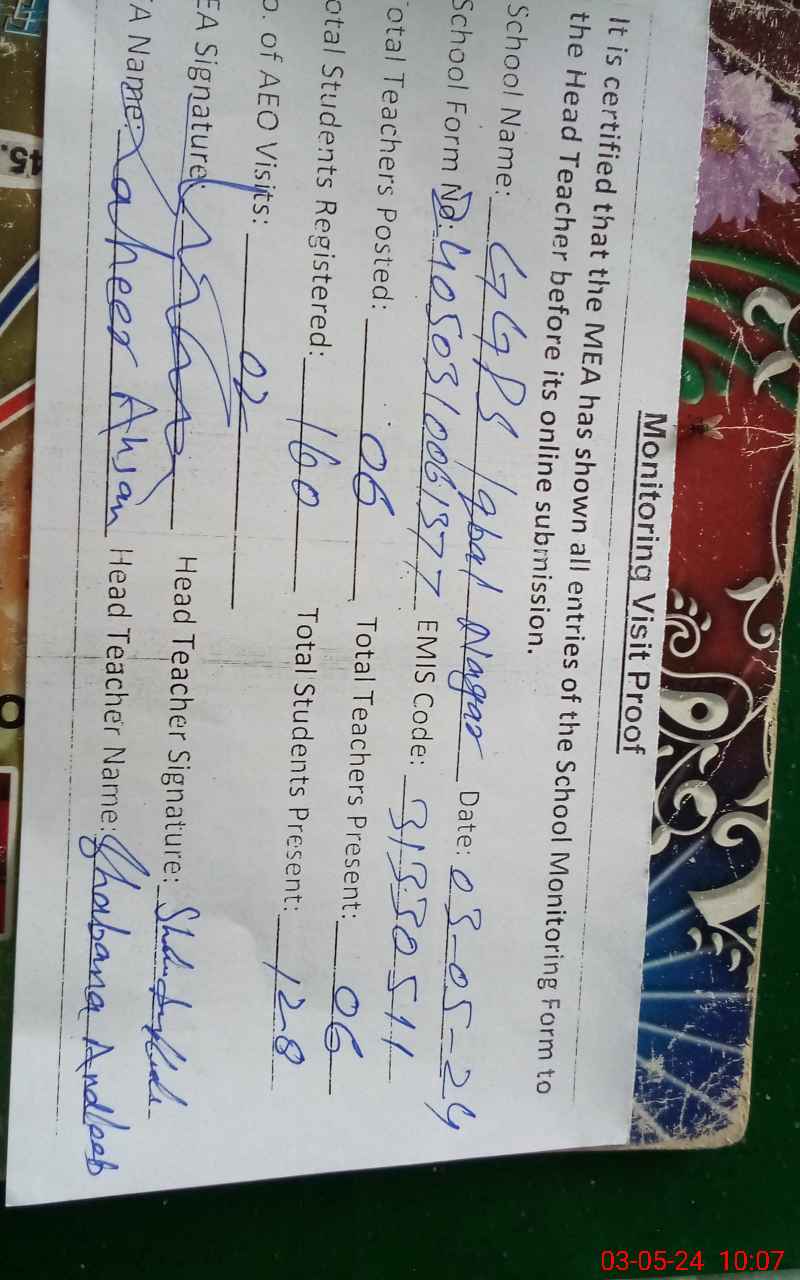 Monitoring Visit Proof
It is certified that the MEA has shown all entries of the School Monitoring Form to
the Head Teacher before its online submission.
School Name: GGPS Iqbal Nagar Date: 03-05-24
School Form No: 4050310061377 EMIS Code: 31330511
otal Teachers Posted: 06 Total Teachers Present: 06
otal Students Registered: 160 Total Students Present: 128
o. of AEO Visits: 02
EA Signature: Head Teacher Signature:
A Name: Zaheer Ahsan Head Teacher Name: Shabana Andleeb
45.
03-05-24 10:07